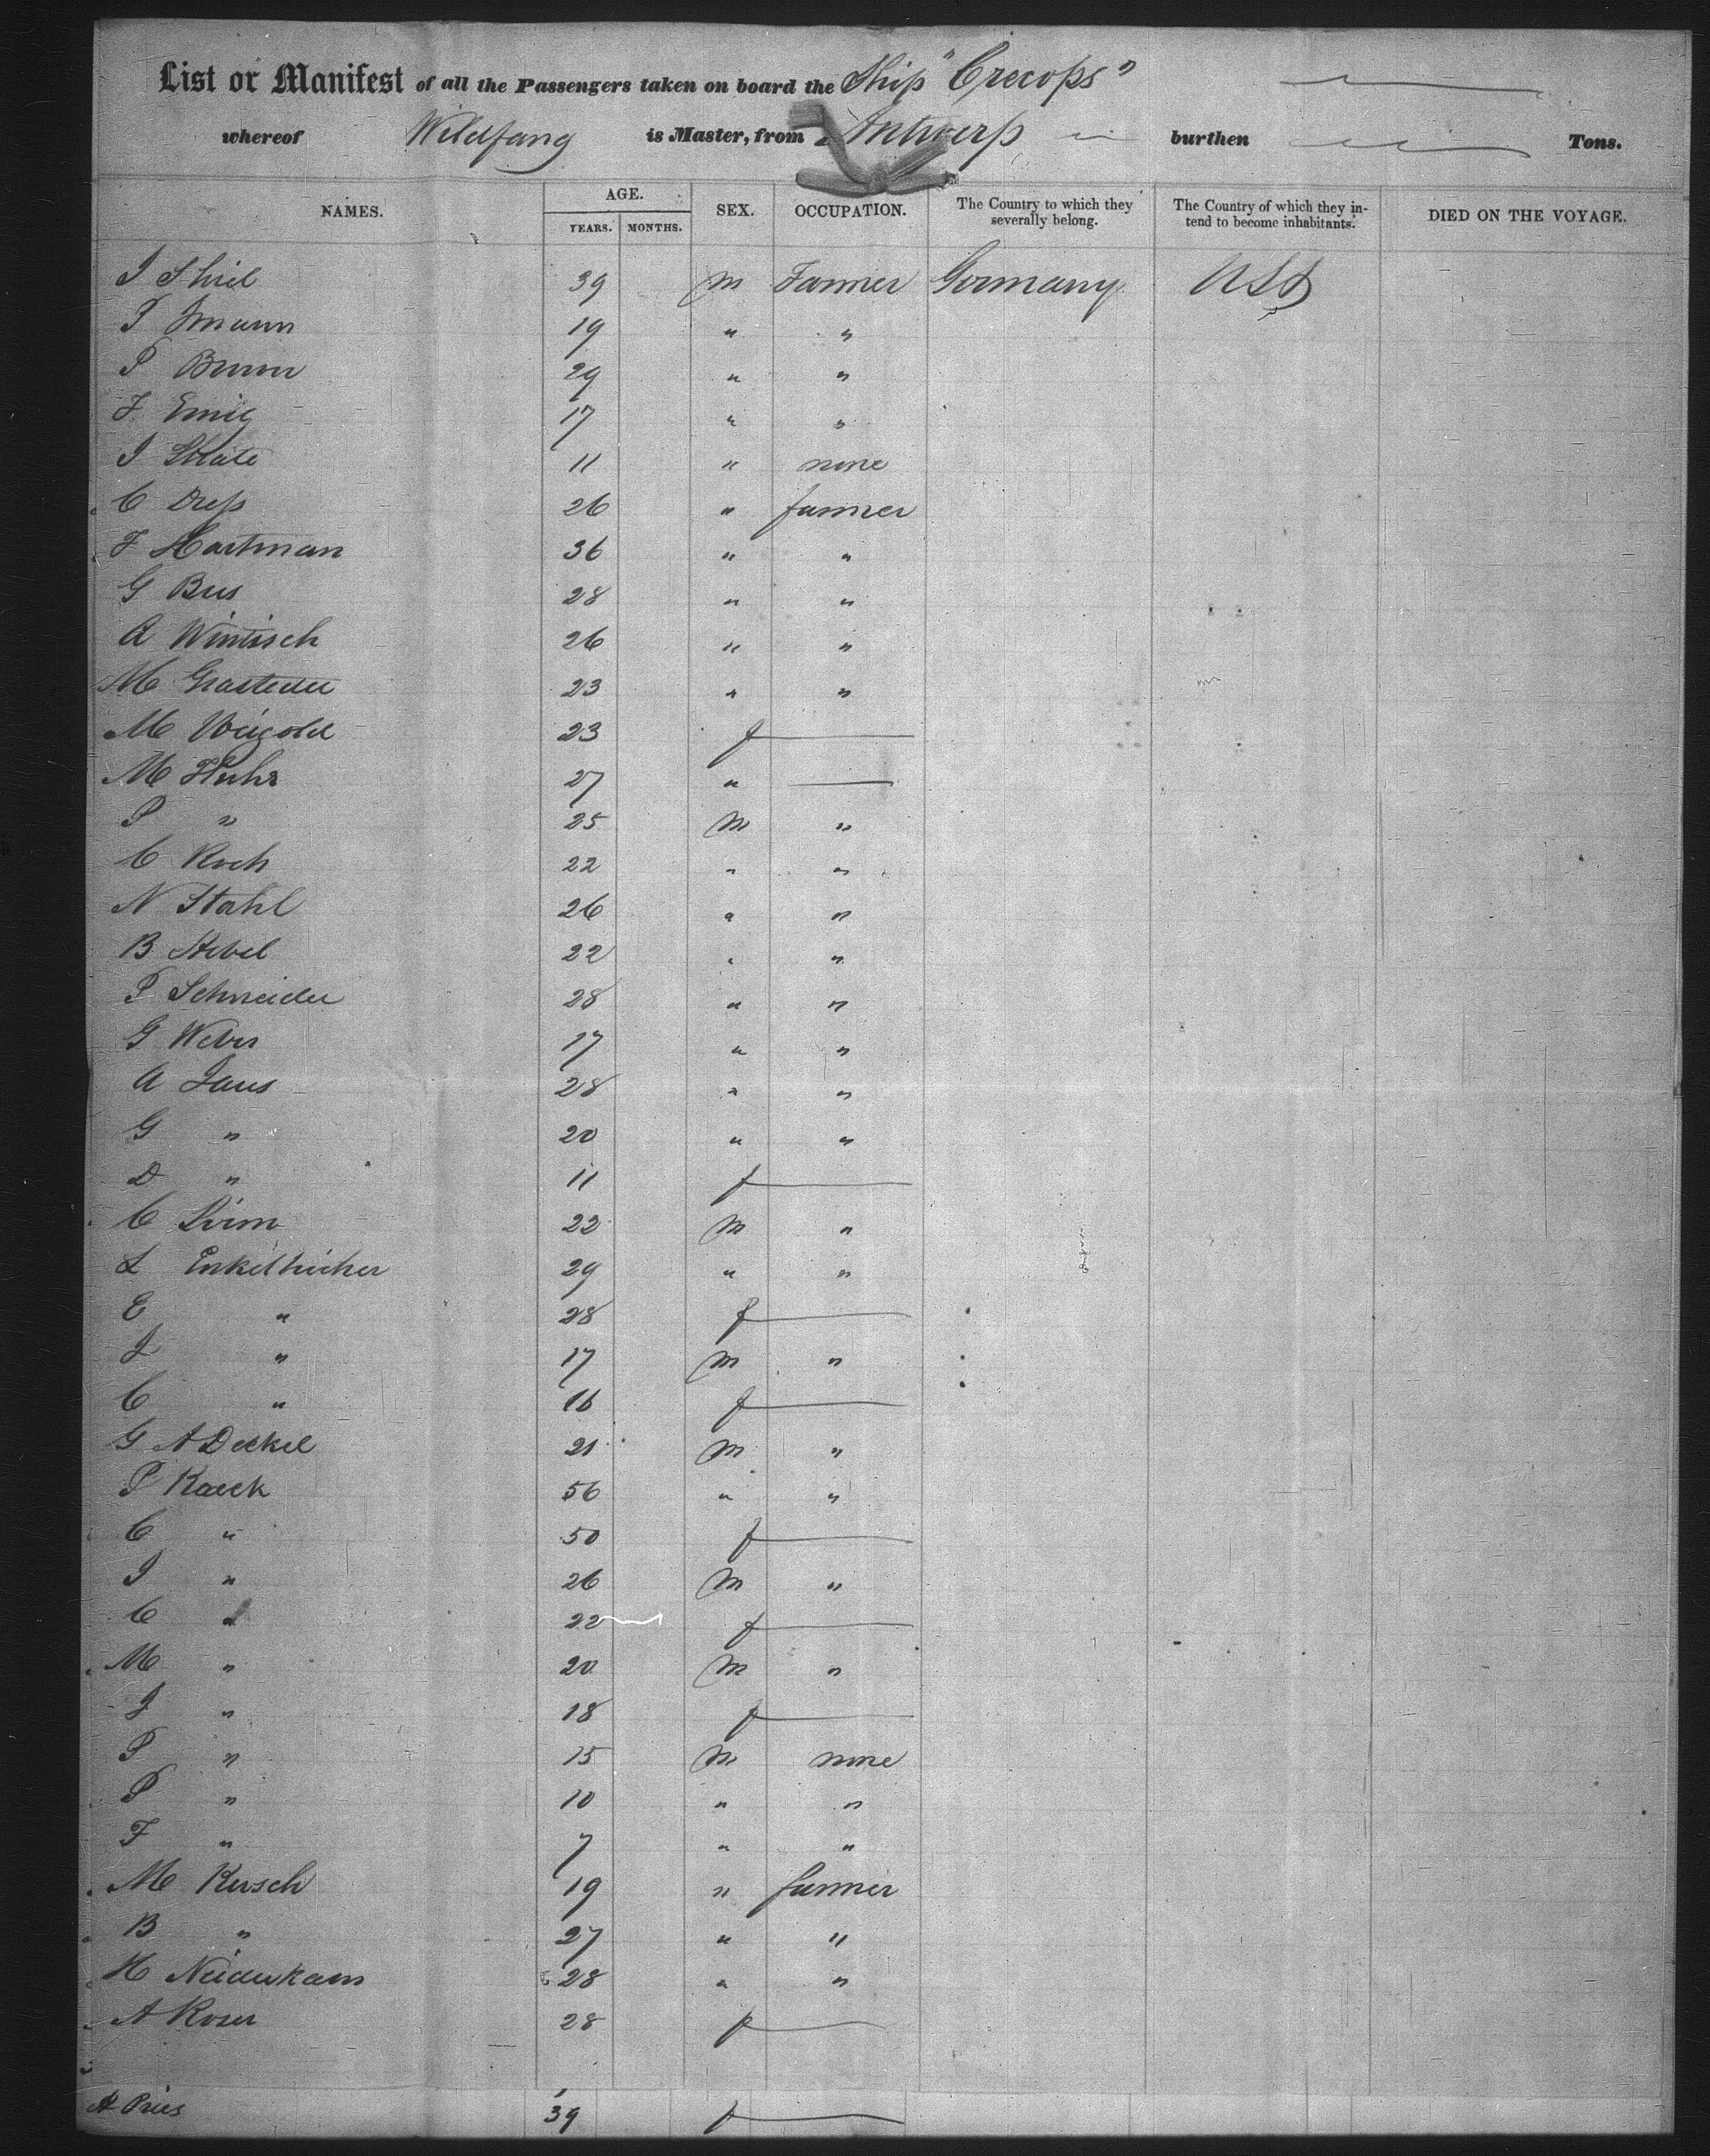 List or Manifest of all the Passengers taken on board the Ship "Crecops"
whereof Wildfang is Master, from Antwerp burthen Tons.
NAMES. AGE. YEARS. MONTHS. SEX. OCCUPATION. The Country to which they severally belong. The Country of which they intend to become inhabitants. DIED ON THE VOYAGE.
I 39 m Farmer Germany USA
P 19 " "
P 29 " "
F Emig 17 " "
I 11 " none
C 26 " farmer
F Hartman 36 " "
G Bus 28 " "
A Wintisch 26 " "
M 23 " "
M Weigold 23 f
M Fluhr 27 "
P " 25 m "
C Koch 22 " "
N Stahl 26 " "
B 22 " "
P Schneider 28 " "
G Weber 17 " "
A Jaus 28 " "
G " 20 " "
D " 11 f
C 22 m "
L 29 " "
E " 28 f
J " 17 m "
C " 16 f
G A Deckel 21 m "
P Kaeck 56 " "
C " 50 f
I " 26 m "
C " 22 f
M " 20 m "
J " 18 f
P " 15 m none
P " 10 " "
F " 7 " "
M Kersch 19 " farmer
B " 27 " "
H 28 " "
A Koser 28 f
A Pries 39 f